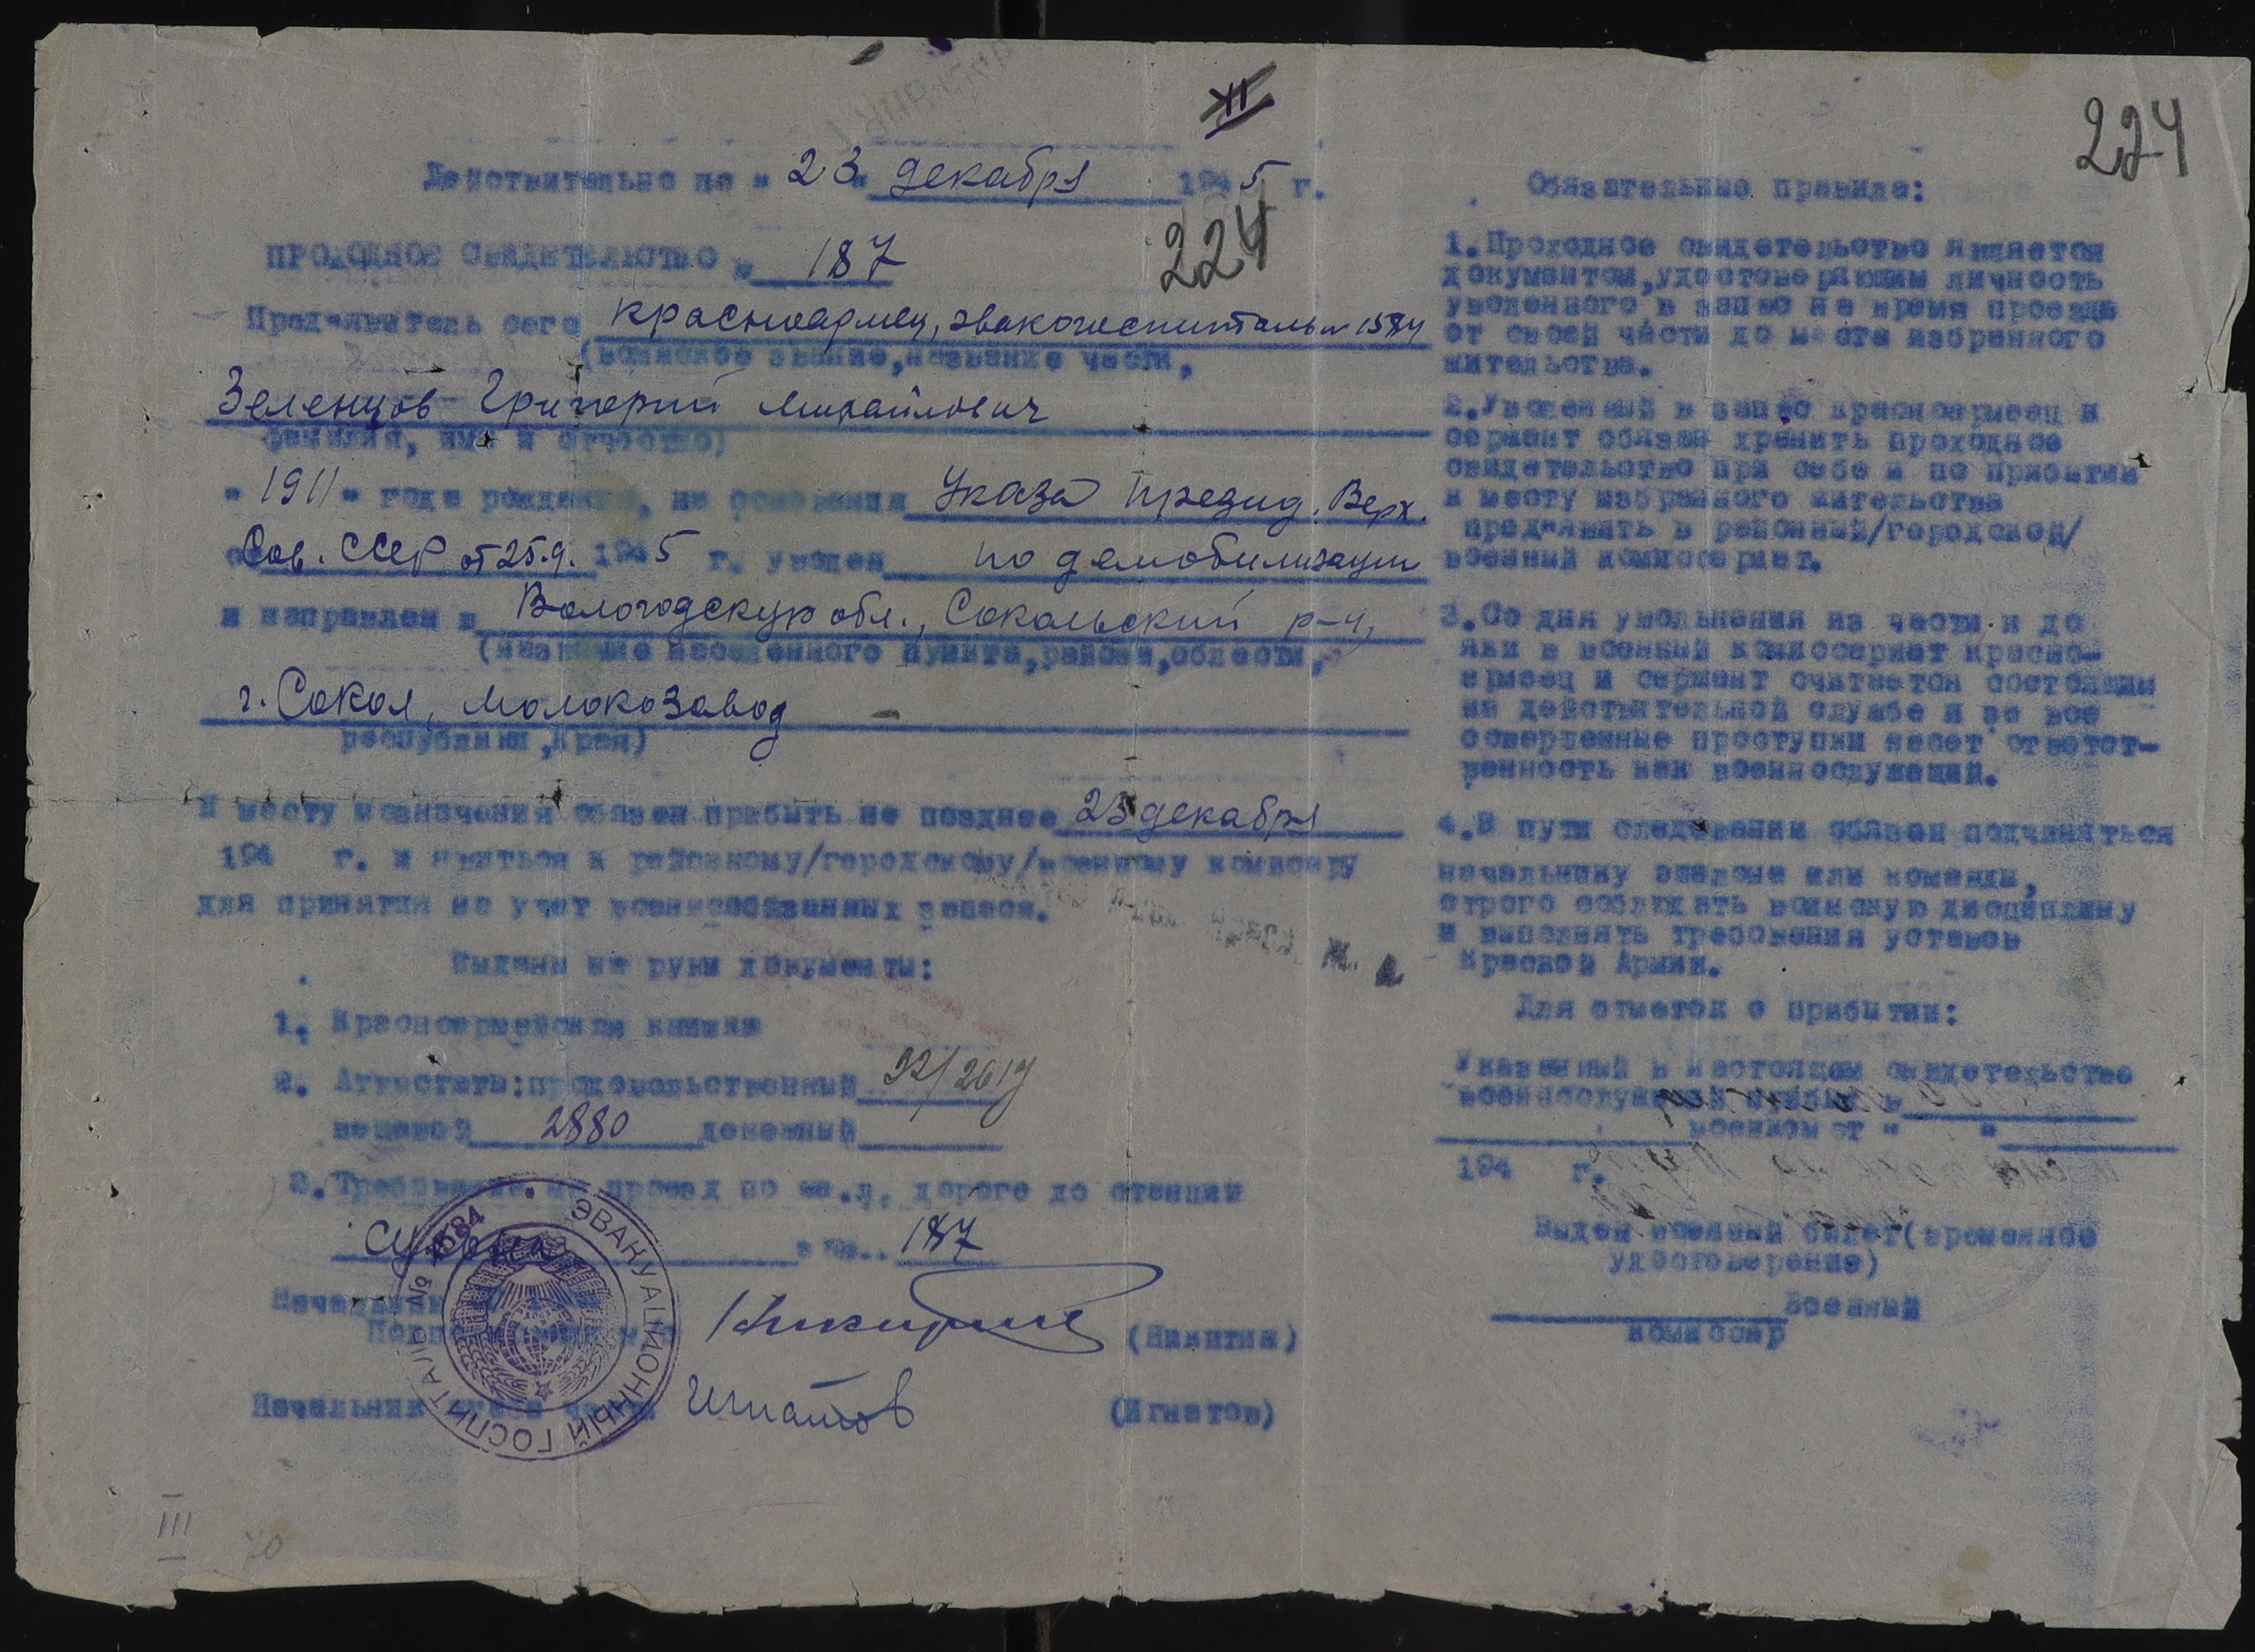 XII
224
Действительно по "23" декабря 1945 г.
224
ПРОХОДНОЕ СВИДЕТЕЛЬСТВО № 187
Пред"явитель сего красноармеец, эвакогоспиталь № 1584
(воинское звание, название части,
Зеленцов Григорий Михайлович
фамилия, имя и отчество)
"1911" года рождения, на основании Указа Презид. Верх.
Сов. СССР от 25.9. 1945 г. уволен по демобилизации
и направлен в Вологодскую обл., Сокольский р-н,
(название населенного пункта, района, области,
г. Сокол, Молокозавод
республики, края)
К месту назначения обязан прибыть не позднее 25 декабря
194 г. и явиться к районному/городскому/военному комиссару
для принятия на учет военнообязанных запаса.
Выданы на руки документы:
1. Красноармейская книжка
2. Аттестаты: продовольственный 92/2619
вещевой 2880 денежный
3. Требование на проезд по ж.д. дороге до станции
Сухона за № 187
Начальник
(Никитин)
Начальник части Игнатов (Игнатов)
ЭВАКУАЦИОННЫЙ ГОСПИТАЛЬ № 1584
III
70
Обязательные правила:
1. Проходное свидетельство является
документом, удостоверяющим личность
уволенного в запас на время проезда
от своей части до места избранного
жительства.
2. Уволенный в запас красноармеец и
сержант обязан хранить проходное
свидетельство при себе и по прибытии
к месту избранного жительства
пред"явить в районный/городской/
военный комиссариат.
3. Со дня увольнения из части и до
явки в военный комиссариат красно-
армеец и сержант считается состоящим
на действительной службе и за все
совершенные проступки несет ответст-
венность как военнослужащий.
4. В пути следования обязан подчиняться
начальнику эшелона или команды,
строго соблюдать воинскую дисциплину
и выполнять требования уставов
Красной Армии.
Для отметок о прибытии:
Указанный в настоящем свидетельстве
военнослужащий прибыл в
военкомат " "
194 г.
Выдан военный билет (временное
удостоверение)
Военный
комиссар